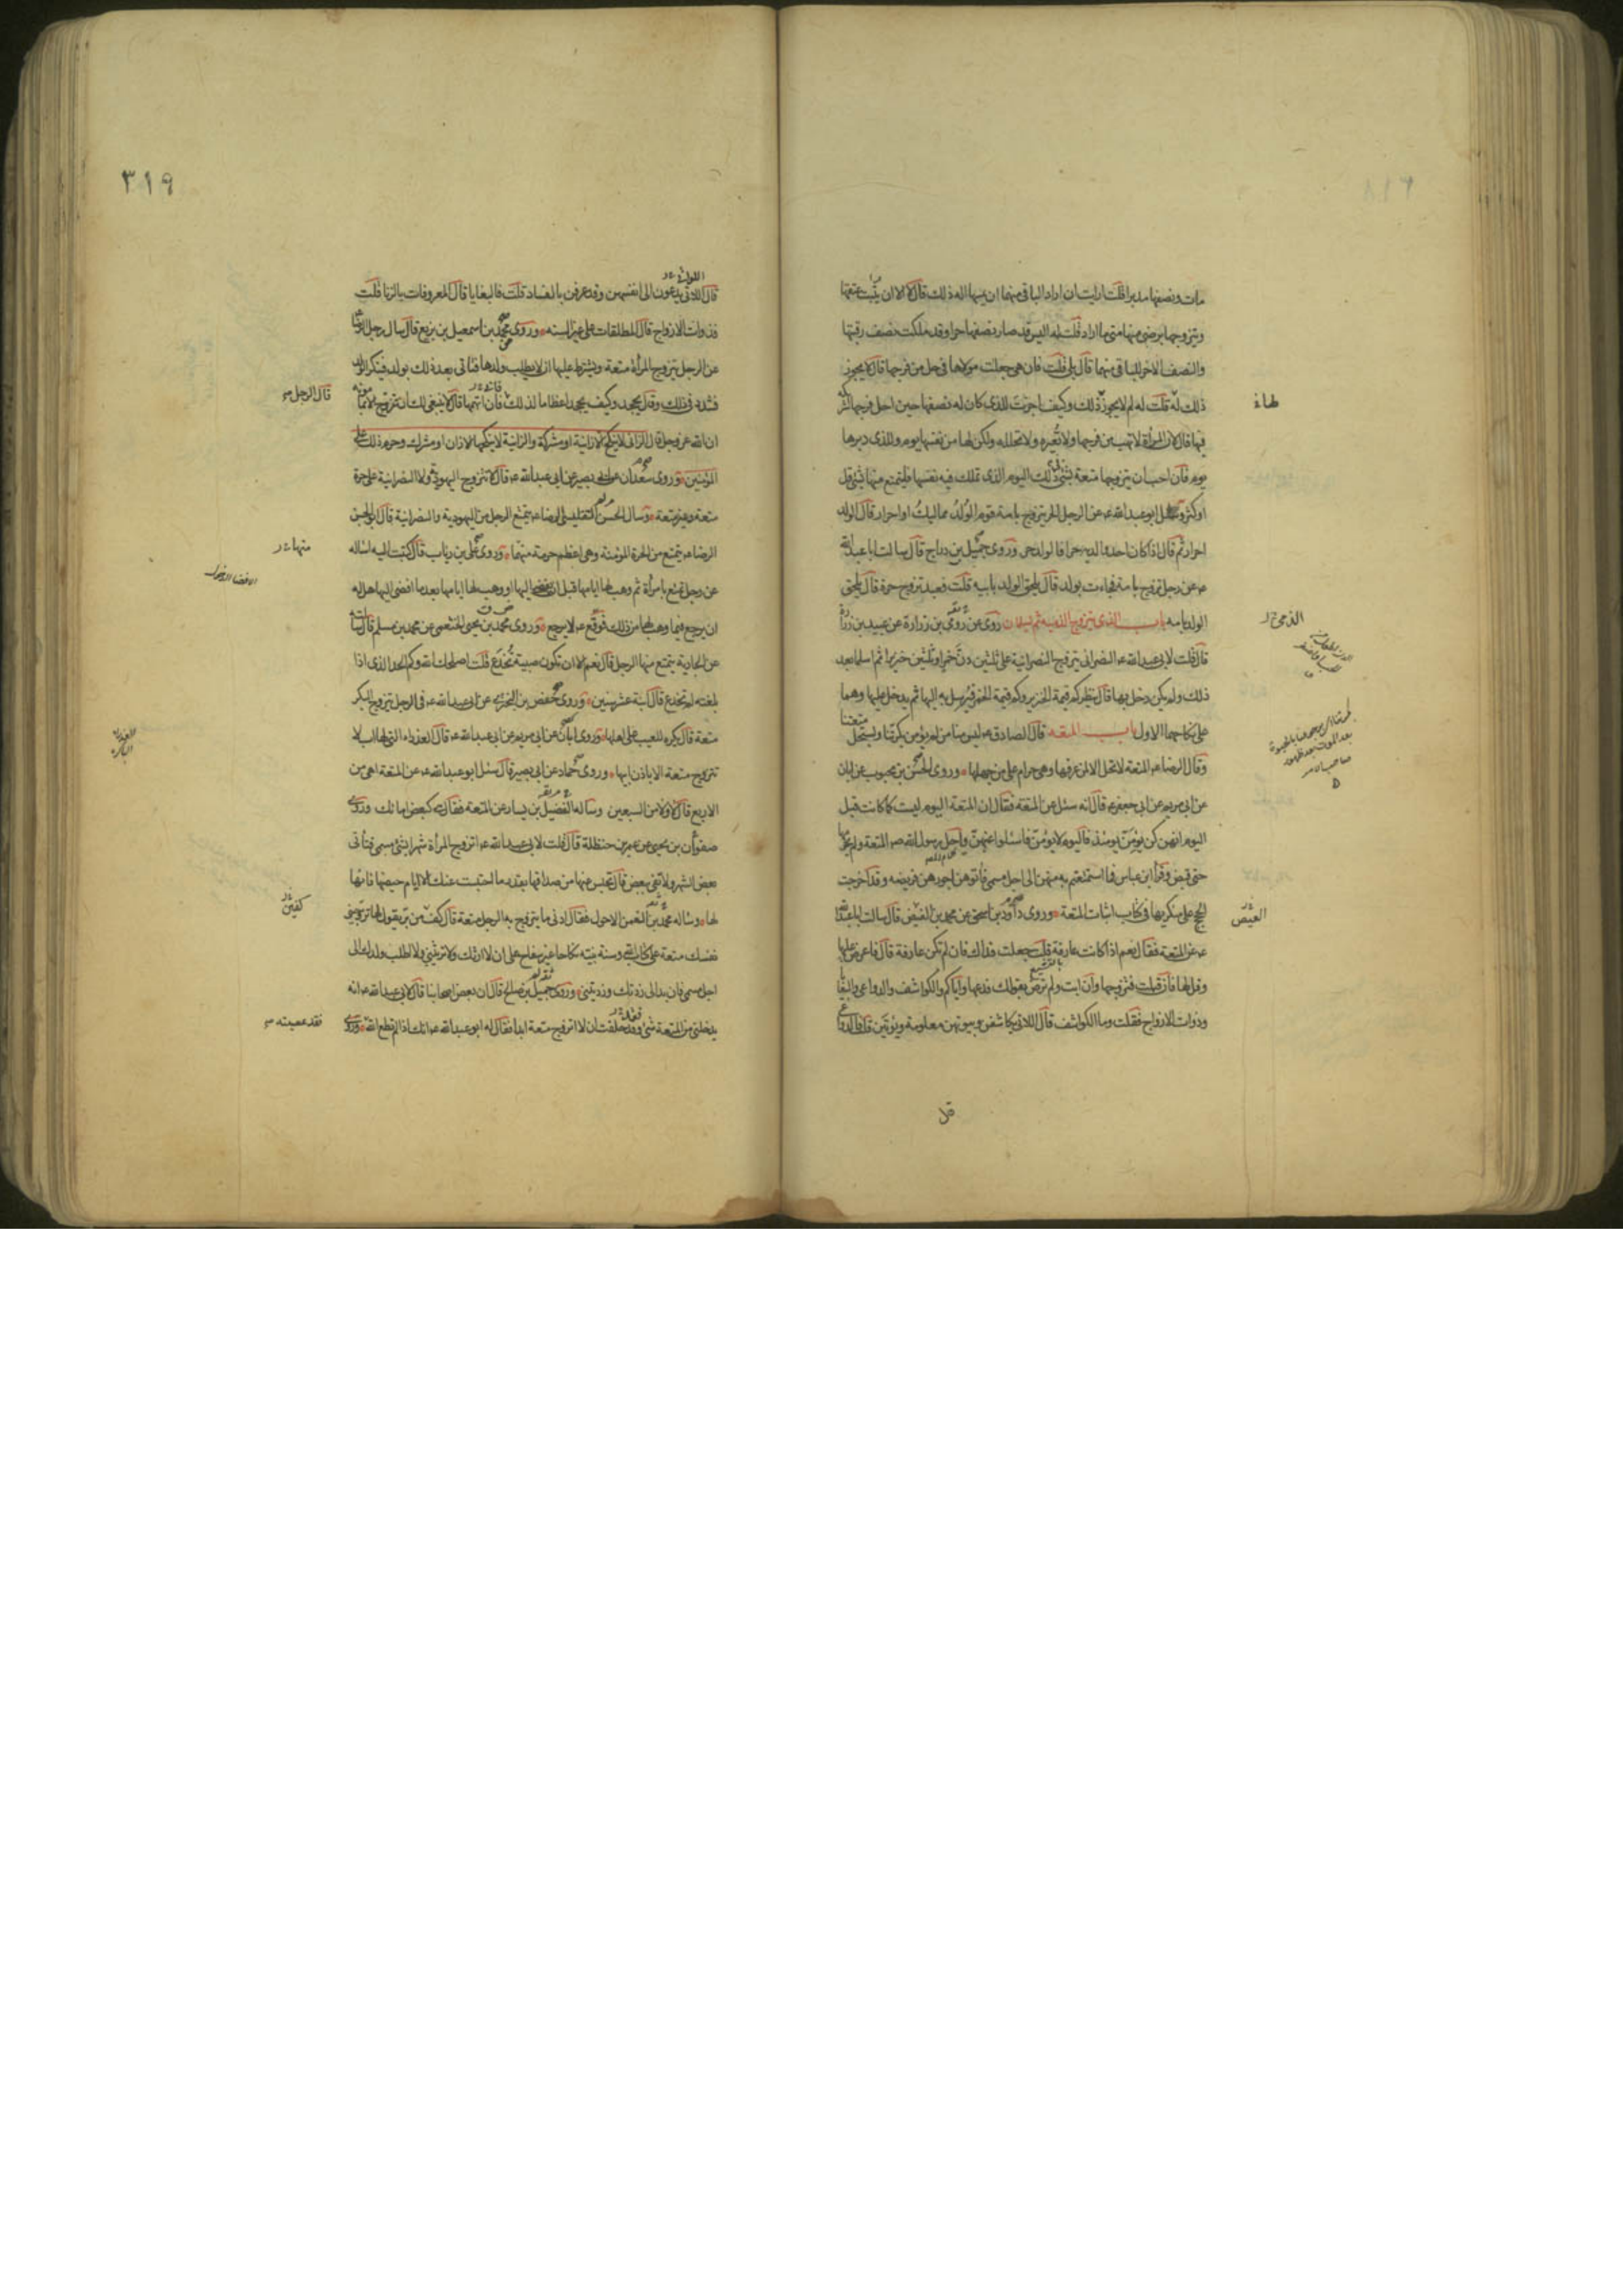 مات ونصفها مدبرا قلت ارايت ان اراد الباقي منهما ان يمسها اله ذلك قال لا الا ان يثبت عتقها
ويتزوجها برضى منها متى ما اراد قلت له اليس قد صار نصفها حرا وقد ملكت نصف رقبتها
والنصف الاخر للباقي منهما قال بلى قلت فان هي جعلت مولاها في حل من فرجها قال لا يجوز
ذلك له قلت له لم لا يجوز ذلك وكيف اجزت للذي كان له نصفها حين احل فرجها لشريكه
فيها قال لان المرأة لا تهب فرجها ولا تعيره ولا تحلله ولكن لها من نفسها يوم وللذي دبرها
يوم فان احب ان يتزوجها متعة بشئ ذلك اليوم الذي تملك فيه نفسها فليتمتع منها بشئ قل
او كثر وسئل ابو عبدالله ع عن الرجل الحر يتزوج بامة قوم الولد مماليك او احرار قال الولد
احرار ثم قال اذا كان احد والديه حرا فالولد حر وروى جميل بن دراج قال سالت ابا عبدالله
ع عن رجل تزوج بامة فجاءت بولد قال يلحق الولد بابيه قلت فعبد تزوج حرة قال يلحق
الولد بامه باب الذي يتزوج الذمية ثم يسلمان روى عن رومي بن زرارة عن عبيد بن زرارة
قال قلت لابي عبدالله ع النصراني يتزوج النصرانية على ثلثين دن خمرا وثلثين خنزيرا ثم اسلما بعد
ذلك ولم يكن دخل بها قال ينظر كم قيمة الخنزير وكم قيمة الخمر فيرسل به اليها ثم يدخل عليها وهما
على نكاحهما الاول باب المتعه قال الصادق ع ليس منا من لم يؤمن بكرتنا ويستحل متعتنا
وقال الرضا ع المتعة لا تحل الا لمن عرفها وهي حرام على من جهلها وروى الحسن بن محبوب عن ابان
عن ابي مريم عن ابي جعفر ع قال انه سئل عن المتعة فقال ان المتعة اليوم ليست كما كانت قبل
اليوم انهن كن يؤمن يومئذ فاليوم لا يؤمن فاسئلوا عنهن واحل رسول الله ص المتعة ولم يحرمها
حتى قبض وقرأ ابن عباس فما استمتعتم به منهن الى اجل مسمى فآتوهن اجورهن فريضه وقد اخرجت
الحجج على منكريها في كتاب اثبات المتعة وروى داود بن اسحق عن محمد بن الفيض قال سالت ابا عبدالله
ع عن المتعة فقال نعم اذا كانت عارفة قلت جعلت فداك فان لم تكن عارفة قال فاعرض عليها
وقل لها فان قبلت فتزوجها وان ابت ولم ترض بقولك فدعها واياكم والكواشف والدواعي والبغايا
وذوات الازواج فقلت وما الكواشف قال اللاتي يكاشفن وبيوتهن معلومة ويؤتين قلت فالدواعي
لها
الذمي
الفيض
٣١٩
قال اللاتي يدعون الى انفسهن وقد عرفن بالفساد قلت فالبغايا قال المعروفات بالزنا قلت
فذوات الازواج قال المطلقات على غير السنه وروى محمد بن اسمعيل بن بزيع قال سال رجل الرضا
عن الرجل يتزوج المرأة متعة ويشترط عليها ان لا يطلب ولدها فتاتي بعد ذلك بولد فينكر الولد
فشدد في ذلك وقال يجحد وكيف يجحد اعظاما لذلك فان اتهمها قال لا ينبغي لك ان تتزوج الا مأمونه
ان الله عز وجل قال الزاني لا ينكح الا زانية او مشركة والزانية لا ينكحها الا زان او مشرك وحرم ذلك على
المؤمنين وروى سعدان عن ابي بصير عن ابي عبدالله ع قال لا تتزوج اليهودية ولا النصرانية على حرة
متعة وغير متعة وسال الحسن التفليسي الرضا ع يتمتع الرجل من اليهودية والنصرانية قال ابو الحسن
الرضا ع يتمتع من الحرة المؤمنة وهي اعظم حرمة منهما وروى علي بن رئاب قال كتبت اليه اساله
عن رجل تمتع بامرأة ثم وهب لها ايامها قبل ان يفضي اليها او وهب لها ايامها بعد ما افضى اليها هل له
ان يرجع فيما وهب لها من ذلك فوقع ع لا يرجع وروى محمد بن يحيى الخثعمي عن محمد بن مسلم قال سالته
عن الجارية يتمتع منها الرجل قال نعم الا ان تكون صبية تخدع قلت اصلحك الله وكم الحد الذي اذا
بلغته لم تخدع قال ابنة عشر سنين وروى حفص بن البختري عن ابي عبدالله ع في الرجل يتزوج البكر
متعة قال يكره للعيب على اهلها وروى ابان عن ابي مريم عن ابي عبدالله ع قال العذراء التي لها اب لا
تتزوج متعة الا باذن ابيها وروى حماد عن ابي بصير قال سئل ابو عبدالله ع عن المتعة اهي من
الاربع قال لا ولا من السبعين وساله الفضيل بن يسار عن المتعة فقال هي كبعض امائك وروى
صفوان بن يحيى عن عمر بن حنظلة قال قلت لابي عبدالله ع اتزوج المرأة شهرا بشئ مسمى فتأتي
بعض الشهر ولا تفي ببعض قال تحبس عنها من صداقها بقدر ما احتبست عنك الا ايام حيضها فانها
لها وساله محمد بن النعمن الاحول فقال ادنى ما يتزوج به الرجل متعة قال كف من بر يقول لها زوجيني
نفسك متعة على كتاب الله وسنة نبيه نكاحا غير سفاح على ان لا ارثك ولا ترثيني ولا اطلب ولدك الى
اجل مسمى فان بدا لي زدتك وزدتيني وروى جميل بن صالح قال ان بعض اصحابنا قال لابي عبدالله ع انه
يدخلني من المتعة شئ وقد حلفت ان لا اتزوج متعة ابدا فقال له ابو عبدالله ع انك اذا لم تطع الله وروى
قال الرجل
منها
كفين
فقد عصيته